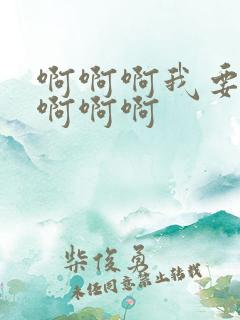 啊啊啊我要
啊啊啊
柴俊勇
未经同意禁止转载